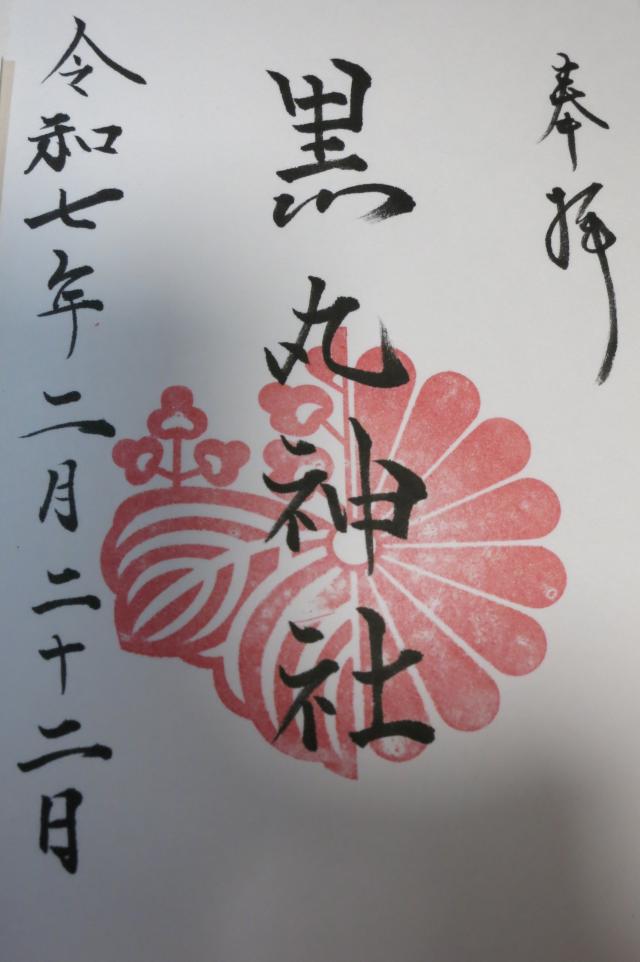 奉拝
黒丸神社
令和七年二月二十二日